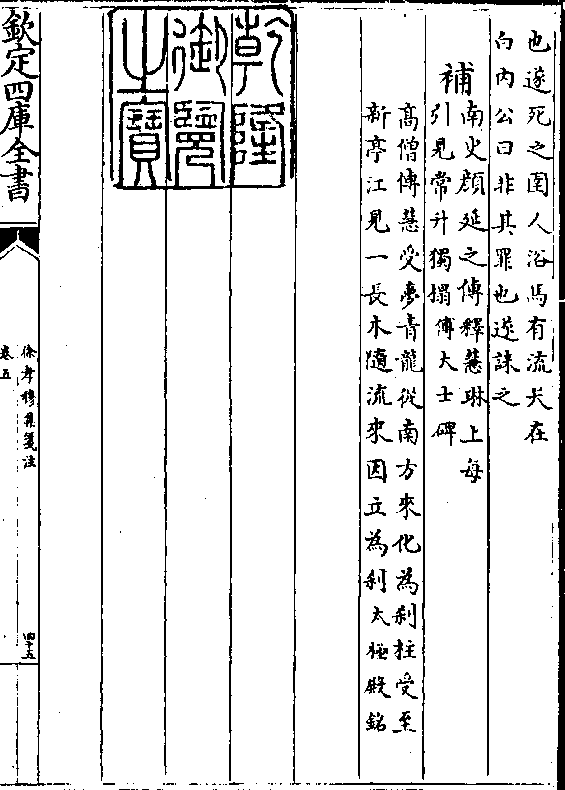 也遂死之圉人浴馬有流矢在
白肉公曰非其罪也遂誄之
補
南史顔延之傳釋慧琳上每
引見常升獨榻傅大士碑
高僧傳慧受夢青龍從南方來化為刹柱受至
新亭江見一長木隨流來因立為刹太極殿銘
乾隆
御覽
之寶
欽定四庫全書
徐孝穆集箋注
卷五
四十五